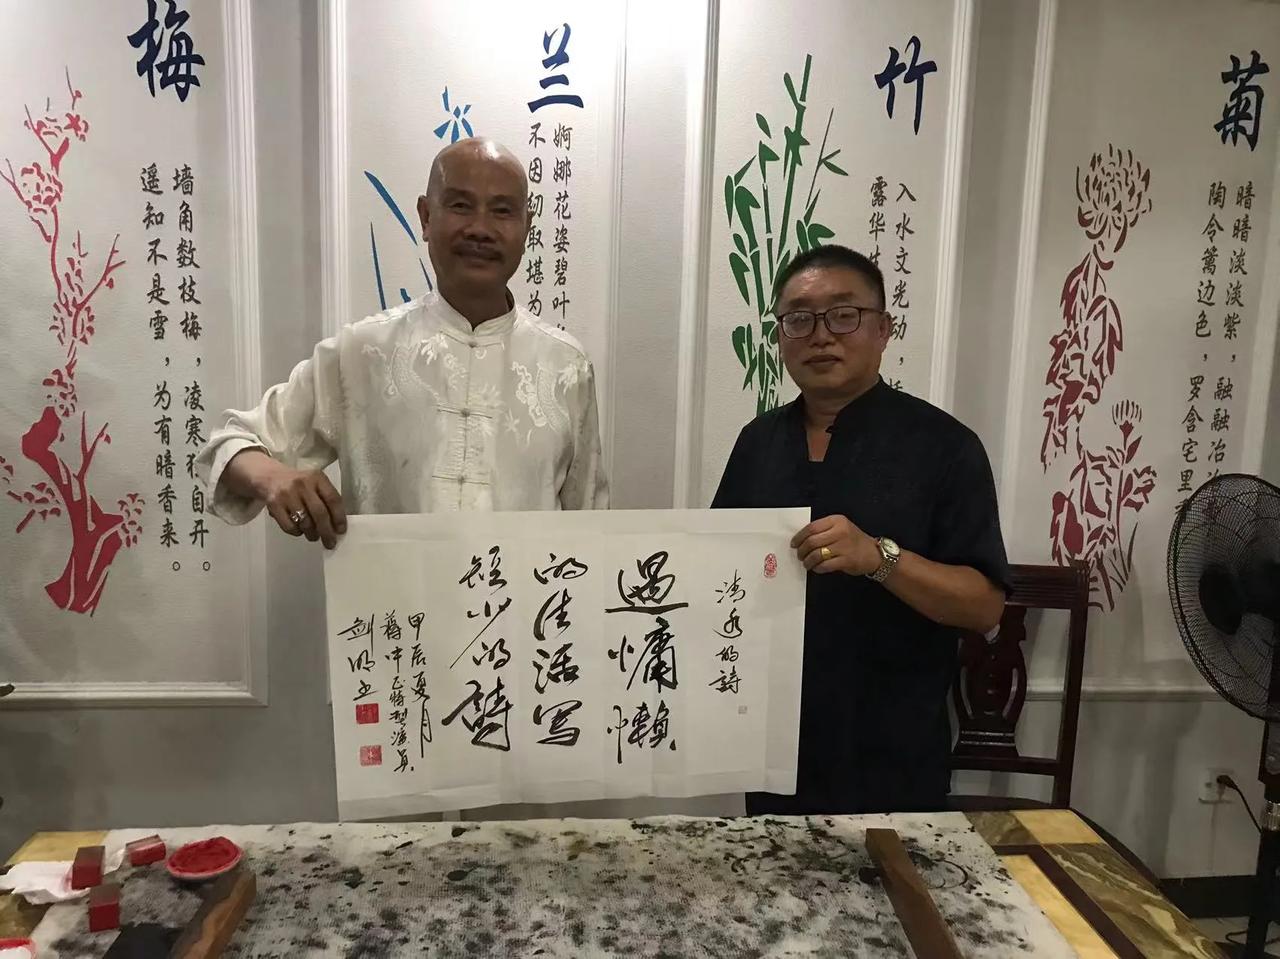 梅
墙角数枝梅，凌寒独自开。
遥知不是雪，为有暗香来。
兰
婀娜花姿碧叶
不因纫取堪为
竹
入水文光动，
露华
菊
暗暗淡淡紫，融融冶
陶令篱边色，罗含宅里
清逸的詩
過慵懶
的生活写
短小的詩
甲辰夏月
蒋中正特型演員
劍明书